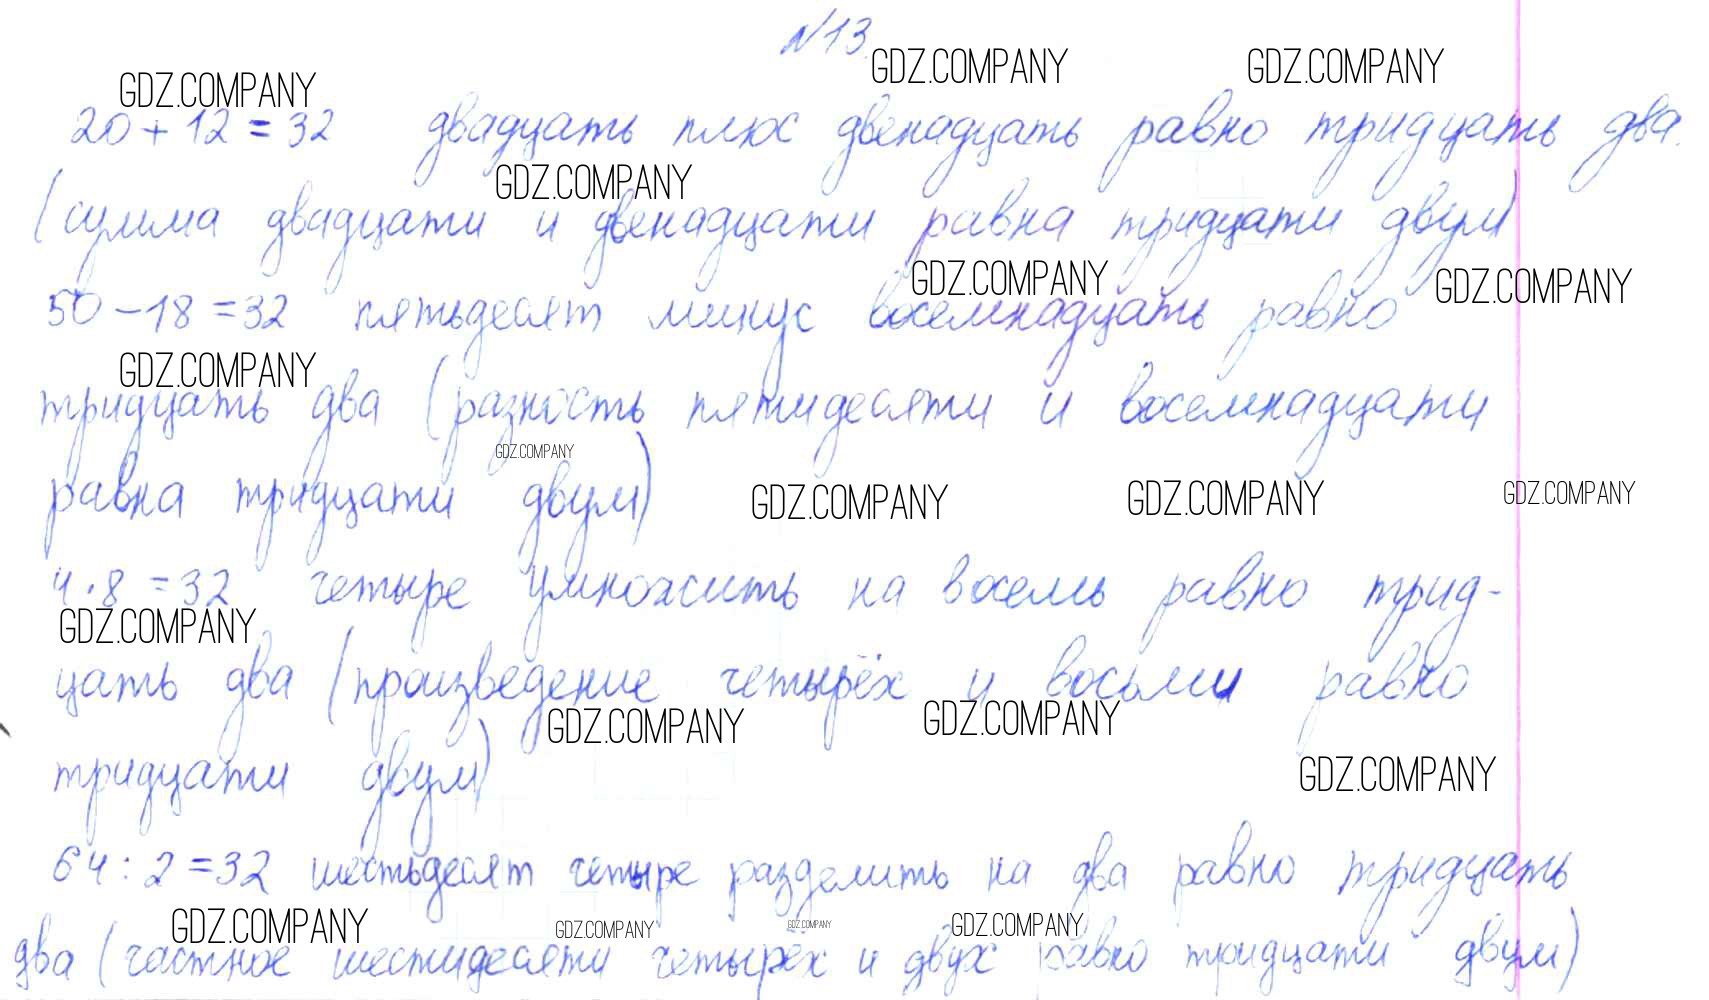 №13.
GDZ.COMPANY GDZ.COMPANY GDZ.COMPANY
20 + 12 = 32 двадцать плюс двенадцать равно тридцать два.
GDZ.COMPANY
(сумма двадцати и двенадцати равна тридцати двум)
GDZ.COMPANY GDZ.COMPANY
50 - 18 = 32 пятьдесят минус восемнадцать равно
GDZ.COMPANY
тридцать два (разность пятидесяти и восемнадцати
GDZ.COMPANY
равна тридцати двум)
GDZ.COMPANY GDZ.COMPANY GDZ.COMPANY
4 · 8 = 32 четыре умножить на восемь равно трид-
GDZ.COMPANY
цать два (произведение четырёх и восьми равно
GDZ.COMPANY GDZ.COMPANY
тридцати двум)
GDZ.COMPANY
64 : 2 = 32 шестьдесят четыре разделить на два равно тридцать
GDZ.COMPANY GDZ.COMPANY GDZ.COMPANY GDZ.COMPANY
два (частное шестидесяти четырёх и двух равно тридцати двум)